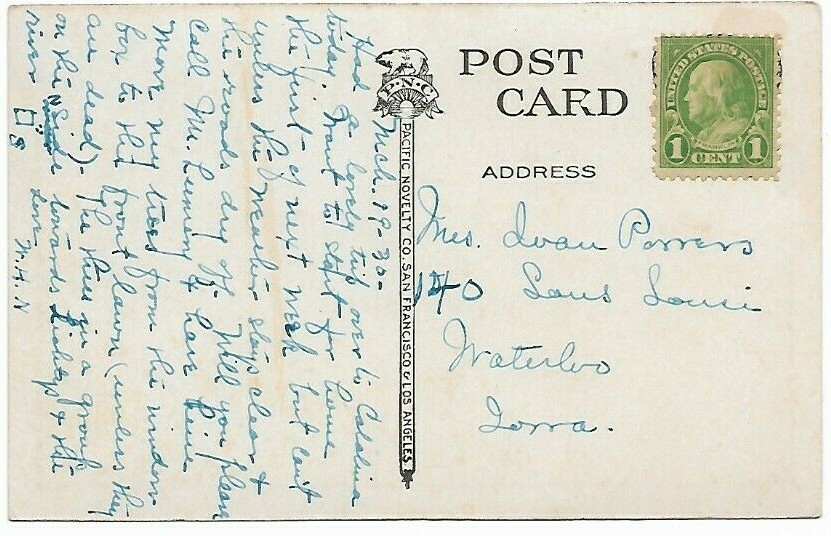 POST
CARD
ADDRESS
P·N·C
PACIFIC NOVELTY CO., SAN FRANCISCO & LOS ANGELES
UNITED STATES POSTAGE
FRANKLIN
1 CENT 1
Mrs. Ivan Powers
140 Sans Souci
Waterloo
Iowa.
Mch. 19-30-
Had a lovely trip over to Catalina
today. Want to start for home
the first of next week but can't
unless the weather stays clear &
the roads dry off. Will you please
call Mr. & have him
move my trees from the window
box to the front lawn (unless they
are dead). The three in a group
on the side towards & the
river
Love M.H.N